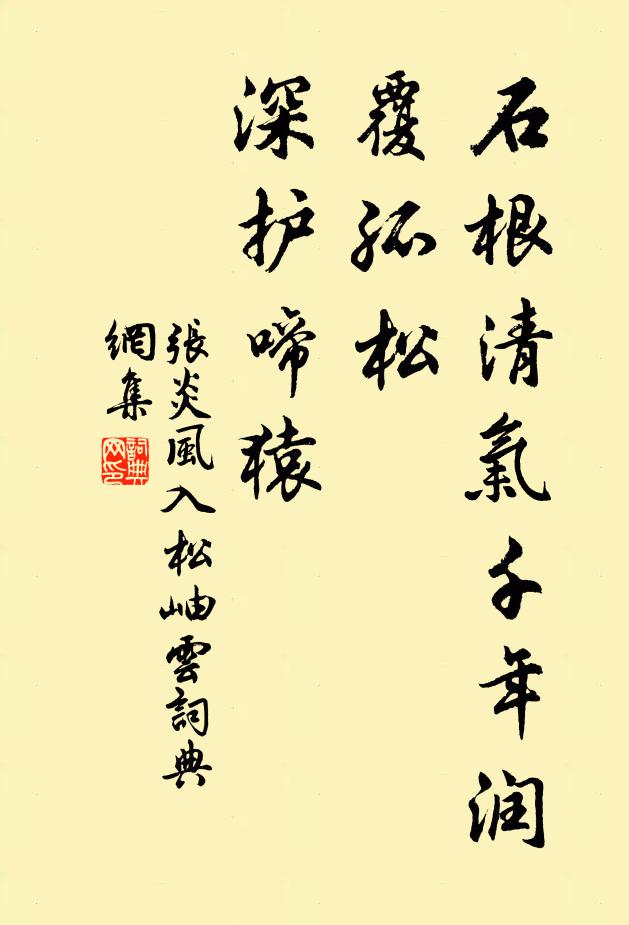 石根清氣千年润
覆孤松
深护啼猿
張炎風入松岫雲詞典
網集
詞典网印